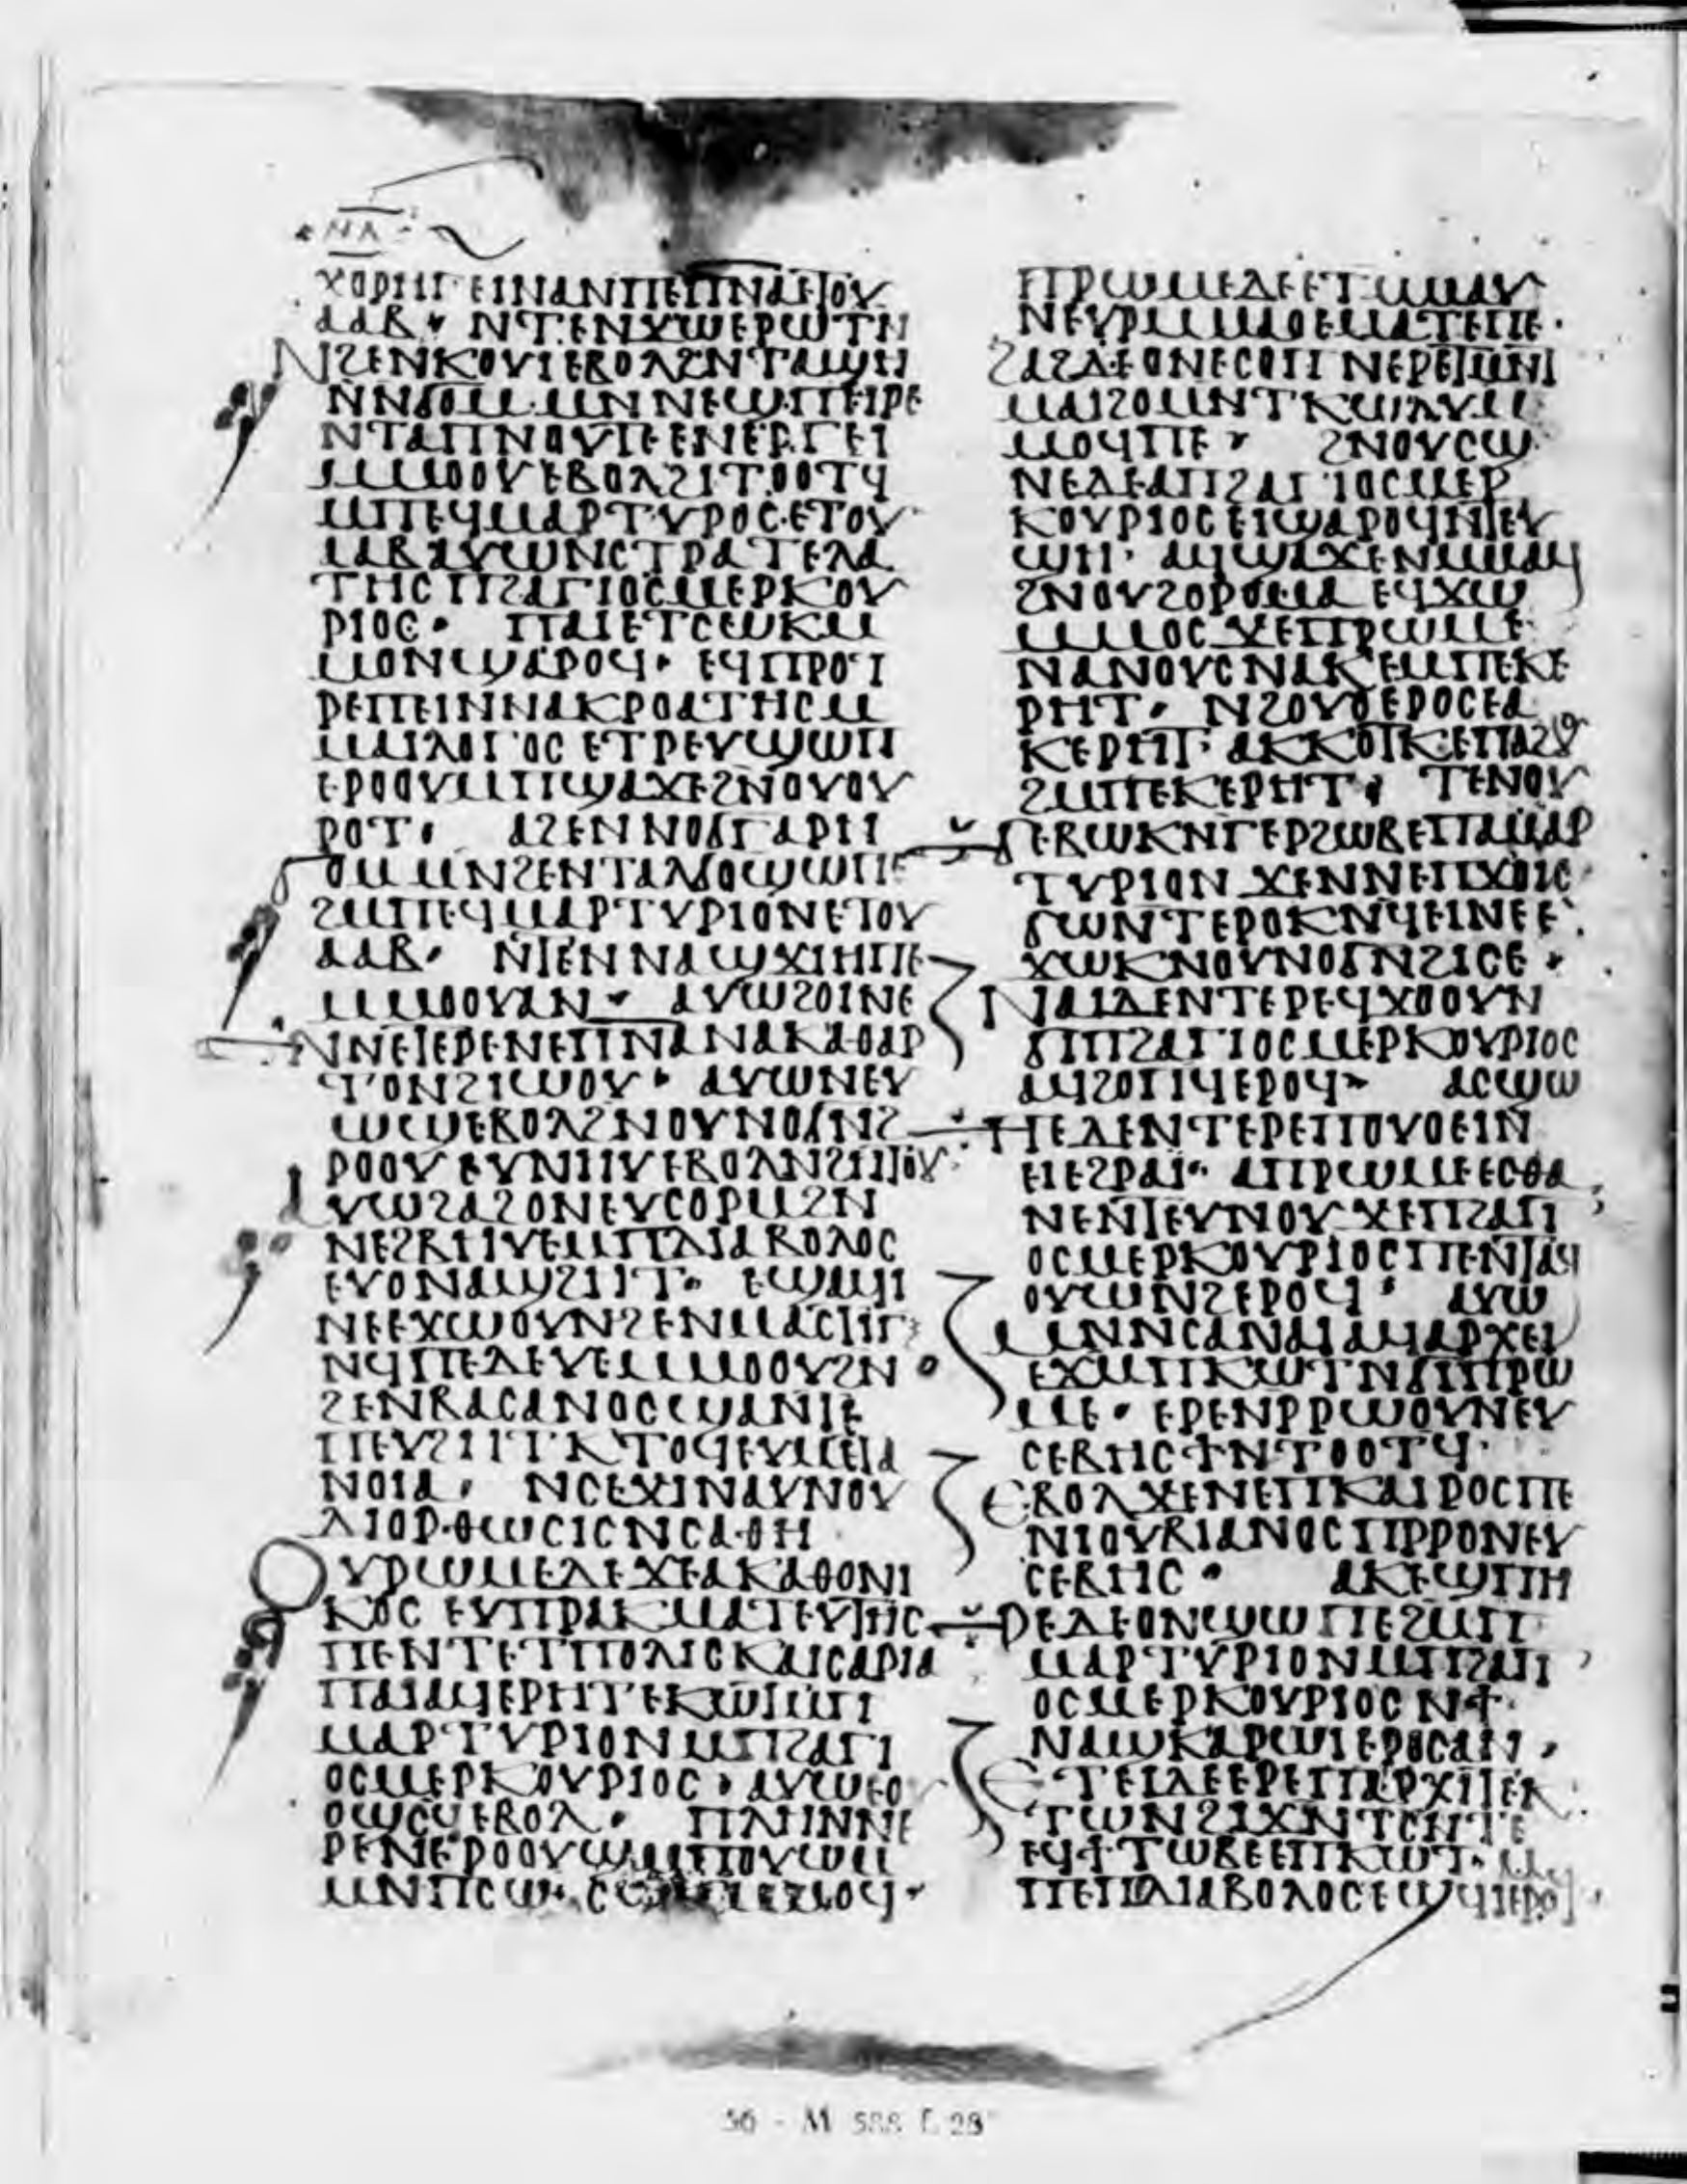 ⲛⲁ
ⲭⲟⲣⲏⲅⲉⲓ ⲛⲁⲛ ⲙⲡⲉⲡⲛⲁ ⲉⲧⲟⲩ
ⲁⲁⲃ· ⲛⲧⲉⲛϫⲱ ⲉⲣⲱⲧⲛ
ⲛϩⲉⲛⲕⲟⲩⲓ ⲉⲃⲟⲗϩⲛⲧⲁϣⲏ
ⲛⲛϭⲟⲙ ⲙⲛⲛⲉϣⲡⲏⲣⲉ
ⲛⲧⲁⲡⲛⲟⲩⲧⲉ ⲉⲛⲉⲣⲅⲉⲓ
ⲙⲙⲟⲟⲩ ⲉⲃⲟⲗϩⲓⲧⲟⲟⲧϥ
ⲙⲡⲉϥⲙⲁⲣⲧⲩⲣⲟⲥ ⲉⲧⲟⲩ
ⲁⲁⲃ ⲁⲩⲱ ⲛⲥⲧⲣⲁⲧⲉⲗⲁ
ⲧⲏⲥ ⲡϩⲁⲅⲓⲟⲥ ⲙⲉⲣⲕⲟⲩ
ⲣⲓⲟⲥ· ⲡⲁⲓ ⲉⲧⲥⲱⲕ ⲙ
ⲙⲟⲛ ϣⲁⲣⲟϥ· ⲉϥⲡⲣⲟⲧ
ⲣⲉⲡⲉⲓ ⲛⲛⲁⲕⲣⲟⲁⲧⲏⲥ ⲙ
ⲙⲁⲓⲗⲟⲅⲟⲥ ⲉⲧⲣⲉⲩϣⲱⲡ
ⲉⲣⲟⲟⲩ ⲙⲡϣⲁϫⲉ ϩⲛⲟⲩⲟⲩ
ⲣⲟⲧ· ⲁϩⲉⲛⲛⲟϭ ⲅⲁⲣ ⲛ
ϭⲟⲙ ⲙⲛϩⲉⲛⲧⲁⲗϭⲟ ϣⲱⲡⲉ
ϩⲙⲡⲉϥⲙⲁⲣⲧⲩⲣⲓⲟⲛ ⲉⲧⲟⲩ
ⲁⲁⲃ· ⲛⲧⲉⲛⲛⲁϣϫⲓⲏⲡⲉ
ⲙⲙⲟⲟⲩ ⲁⲛ· ⲁⲩⲱ ϩⲟⲓⲛⲉ
ⲛⲛⲉⲧⲉⲣⲉⲛⲉⲡⲛⲁ ⲛⲁⲕⲁⲑⲁⲣ
ⲧⲟⲛ ϩⲓⲱⲟⲩ· ⲁⲩⲱ ⲛⲉⲩ
ⲱϣ ⲉⲃⲟⲗ ϩⲛⲟⲩⲛⲟϭ ⲛϩ
ⲣⲟⲟⲩ ⲉⲩⲛⲏⲩ ⲉⲃⲟⲗ ⲛϩⲏⲧⲟⲩ
ⲁⲩⲱ ϩⲁϩ ⲟⲛ ⲉⲩⲥⲟⲣⲙ ϩⲛ
ⲛⲉϩⲃⲏⲩⲉ ⲙⲡⲇⲓⲁⲃⲟⲗⲟⲥ
ⲉⲩⲟ ⲛⲁϣϩⲏⲧ· ⲉϣⲁϥⲓ
ⲛⲉ ⲉϫⲱⲟⲩ ⲛϩⲉⲛⲙⲁⲥⲧⲓⲅⲝ
ⲛϥⲡⲉⲇⲉⲩⲉ ⲙⲙⲟⲟⲩ ϩⲛ
ϩⲉⲛⲃⲁⲥⲁⲛⲟⲥ ϣⲁⲛⲧⲉ
ⲡⲉⲩϩⲏⲧ ⲕⲧⲟϥ ⲉⲩⲙⲉⲧⲁ
ⲛⲟⲓⲁ· ⲛⲥⲉϫⲓ ⲛⲁⲩ ⲛⲟⲩ
ⲇⲓⲟⲣⲑⲱⲥⲓⲥ ⲛⲥⲁⲑⲏ
ⲟⲩⲣⲱⲙⲉ ⲇⲉ ϫⲉ ⲁⲕⲁⲑⲟⲛⲓ
ⲕⲟⲥ ⲉⲩⲡⲣⲁⲕⲙⲁⲧⲉⲩⲧⲏⲥ
ⲡⲉ ⲛⲧⲉⲧⲡⲟⲗⲓⲥ ⲕⲁⲓⲥⲁⲣⲓⲁ
ⲡⲁⲓ ⲁϥⲉⲣⲏⲧ ⲉⲕⲱⲧ ⲙⲡ
ⲙⲁⲣⲧⲩⲣⲓⲟⲛ ⲙⲡϩⲁⲅⲓ
ⲟⲥ ⲙⲉⲣⲕⲟⲩⲣⲓⲟⲥ· ⲁⲩⲱ ⲉⲟ
ⲟϣⲥϥ ⲉⲃⲟⲗ· ⲡⲗⲏⲛ ⲛⲉ
ⲣⲉⲛⲉϩⲟⲟⲩ ⲙⲡⲟⲩⲱⲙ
ⲙⲛⲡⲥⲱ
ⲡⲣⲱⲙⲉ ⲇⲉ ⲉⲧⲙⲙⲁⲩ
ⲛⲉⲩⲣⲙⲙⲁⲟ ⲉⲙⲁⲧⲉ ⲡⲉ·
ϩⲁϩ ⲇⲉ ⲟⲛ ⲛⲥⲟⲡ ⲛⲉⲣⲉⲧⲙⲛⲧ
ⲙⲁⲓϩⲟⲙⲛⲧ ⲕⲱⲗⲩ ⲙ
ⲙⲟϥ ⲡⲉ· ϩⲛⲟⲩⲥⲱ
ⲛⲉ ⲇⲉ ⲁⲡϩⲁⲅⲓⲟⲥ ⲙⲉⲣ
ⲕⲟⲩⲣⲓⲟⲥ ⲉⲓ ϣⲁⲣⲟϥ ⲛⲧⲉⲩ
ϣⲏ· ⲁϥϣⲁϫⲉ ⲛⲙⲙⲁϥ
ϩⲛⲟⲩϩⲟⲣⲟⲙⲁ ⲉϥϫⲱ
ⲙⲙⲟⲥ ϫⲉ ⲡⲣⲱⲙⲉ
ⲛⲁⲛⲟⲩⲥ ⲛⲁⲕ ⲉⲙⲡⲉⲕⲉ
ⲣⲏⲧ· ⲛϩⲟⲩⲟ ⲉⲣⲟⲥ ⲉⲁ
ⲕⲉⲣⲏⲧ· ⲁⲕⲕⲟⲧⲕ ⲉⲡⲁϩⲟⲩ
ϩⲙⲡⲉⲕⲉⲣⲏⲧ· ⲧⲉⲛⲟⲩ
ϭⲉ ⲃⲱⲕ ⲛⲅⲉⲣϩⲱⲃ ⲉⲡⲁⲙⲁⲣ
ⲧⲩⲣⲓⲟⲛ ϫⲉⲛⲛⲉⲡϫⲟⲓⲥ
ϭⲱⲛⲧ ⲉⲣⲟⲕ ⲛϥⲉⲓⲛⲉ ⲉ
ϫⲱⲕ ⲛⲟⲩⲛⲟϭ ⲛϩⲓⲥⲉ·
ⲛⲁⲓ ⲇⲉ ⲛⲧⲉⲣⲉϥϫⲟⲟⲩ ⲛ
ϭⲓⲡϩⲁⲅⲓⲟⲥ ⲙⲉⲣⲕⲟⲩⲣⲓⲟⲥ
ⲁϥϩⲟⲡϥ ⲉⲣⲟϥ· ⲁⲥϣⲱ
ⲡⲉ ⲇⲉ ⲛⲧⲉⲣⲉⲡⲟⲩⲟⲉⲓⲛ
ⲉⲓ ⲉϩⲣⲁⲓ· ⲁⲡⲣⲱⲙⲉ ⲉⲥⲑⲁ
ⲛⲉ ⲛⲧⲉⲩⲛⲟⲩ ϫⲉ ⲡϩⲁⲅⲓ
ⲟⲥ ⲙⲉⲣⲕⲟⲩⲣⲓⲟⲥ ⲡⲉⲛⲧⲁϥ
ⲟⲩⲱⲛϩ ⲉⲣⲟϥ· ⲁⲩⲱ
ⲙⲛⲛⲥⲁⲛⲁⲓ ⲁϥⲁⲣⲭⲉⲓ
ⲉϫⲙⲡⲕⲱⲧ ⲛϭⲓⲡⲣⲱ
ⲙⲉ· ⲉⲣⲉⲛⲣⲣⲱⲟⲩ ⲛⲉⲩ
ⲥⲉⲃⲏⲥ ϯ ⲛⲧⲟⲟⲧϥ·
ⲉⲃⲟⲗ ϫⲉ ⲛⲉⲡⲕⲁⲓⲣⲟⲥ ⲡⲉ
ⲛⲓⲟⲩⲃⲓⲁⲛⲟⲥ ⲡⲣⲣⲟ ⲛⲉⲩ
ⲥⲉⲃⲏⲥ· ⲁⲕⲉϣⲡⲏ
ⲣⲉ ⲇⲉ ⲟⲛ ϣⲱⲡⲉ ϩⲙⲡ
ⲙⲁⲣⲧⲩⲣⲓⲟⲛ ⲙⲡϩⲁⲅⲓ
ⲟⲥ ⲙⲉⲣⲕⲟⲩⲣⲓⲟⲥ ⲛϯ
ⲛⲁⲱⲕⲁⲣⲱⲓ ⲉⲣⲟⲥ ⲁⲛ·
ⲉⲧⲉⲓ ⲇⲉ ⲉⲣⲉⲡⲁⲣⲭⲓⲧⲉⲕ
ⲧⲱⲛ ϩⲓϫⲛⲧⲥⲏⲧⲉ
ⲉϥϯⲧⲱⲃⲉ ⲉⲡⲕⲱⲧ· ⲙ
ⲡⲉⲡⲇⲓⲁⲃⲟⲗⲟⲥ ⲉϣϥⲓ ⲉⲣⲟ
36 - M 588 f. 28